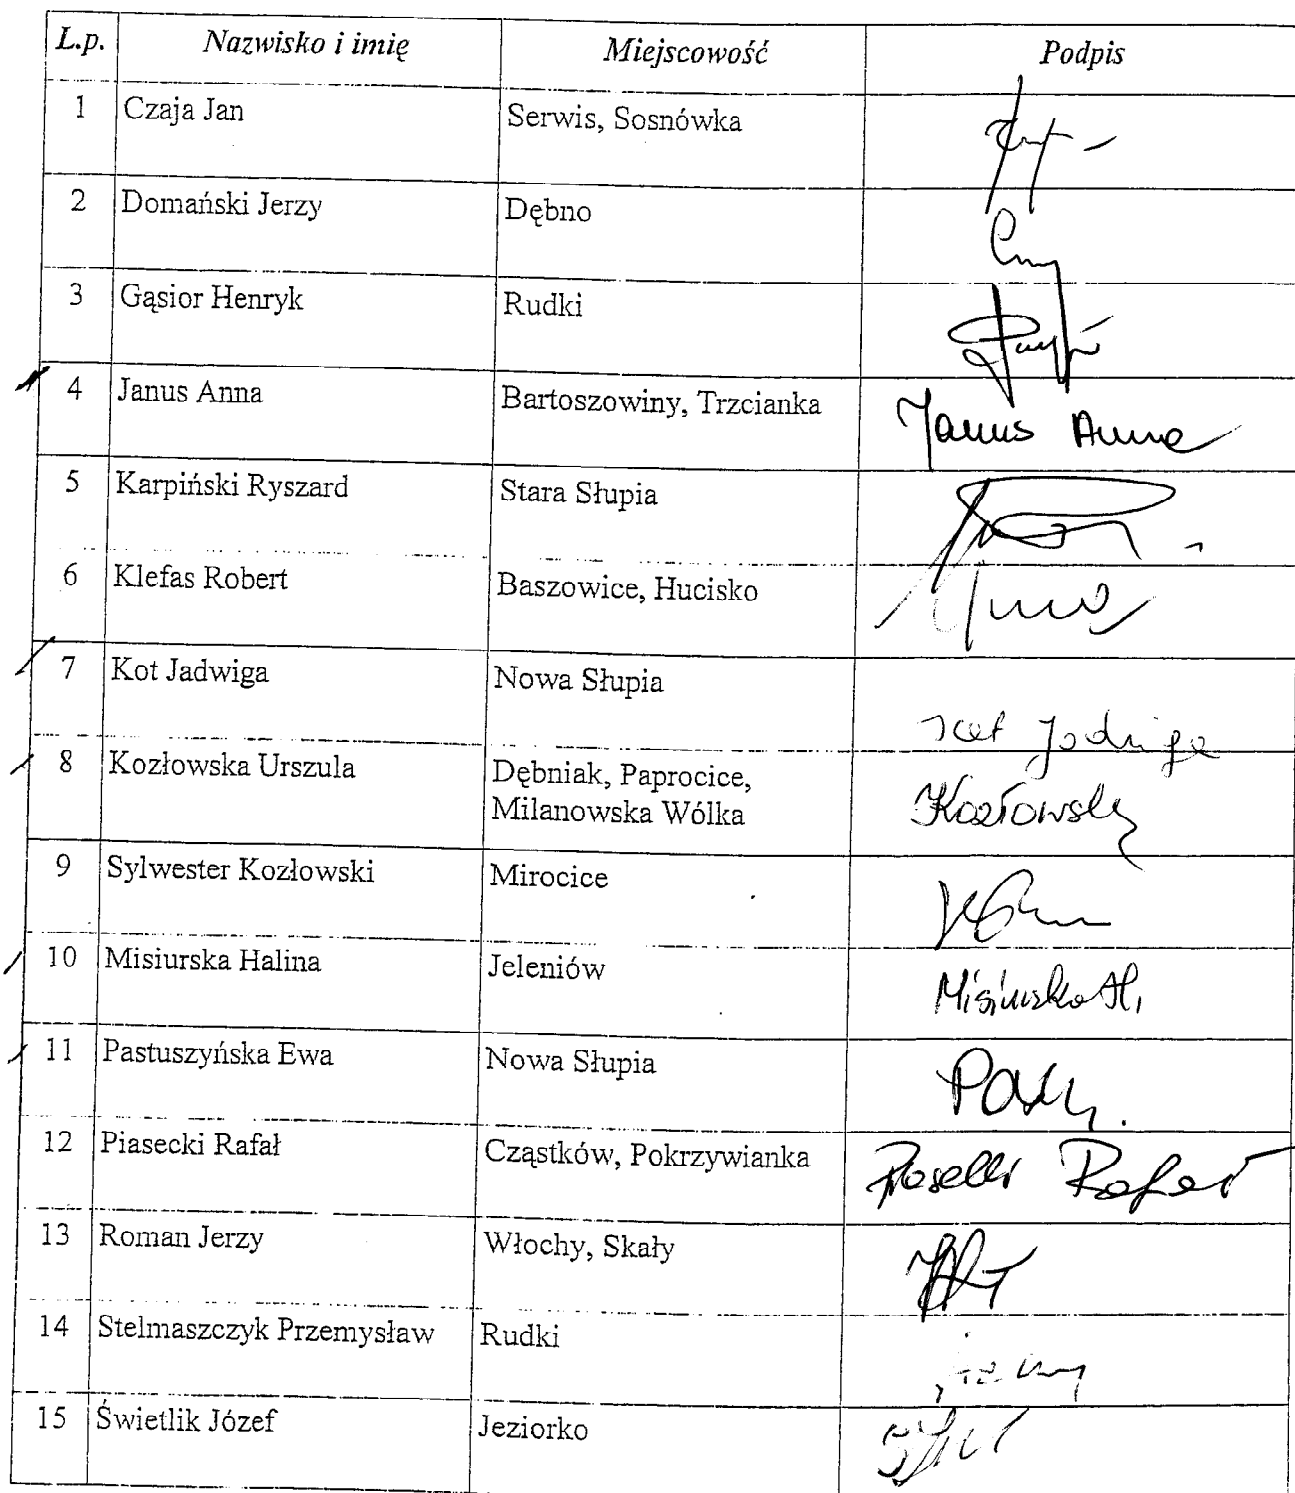 L.p. Nazwisko i imię Miejscowość Podpis
1 Czaja Jan Serwis, Sosnówka
2 Domański Jerzy Dębno
3 Gąsior Henryk Rudki
4 Janus Anna Bartoszowiny, Trzcianka Janus Anna
5 Karpiński Ryszard Stara Słupia
6 Klefas Robert Baszowice, Hucisko
7 Kot Jadwiga Nowa Słupia Kot Jadwiga
8 Kozłowska Urszula Dębniak, Paprocice, Kozłowska
Milanowska Wólka
9 Sylwester Kozłowski Mirocice
10 Misiurska Halina Jeleniów Misiurska H.
11 Pastuszyńska Ewa Nowa Słupia
12 Piasecki Rafał Cząstków, Pokrzywianka Piasecki Rafał
13 Roman Jerzy Włochy, Skały
14 Stelmaszczyk Przemysław Rudki
15 Świetlik Józef Jeziorko